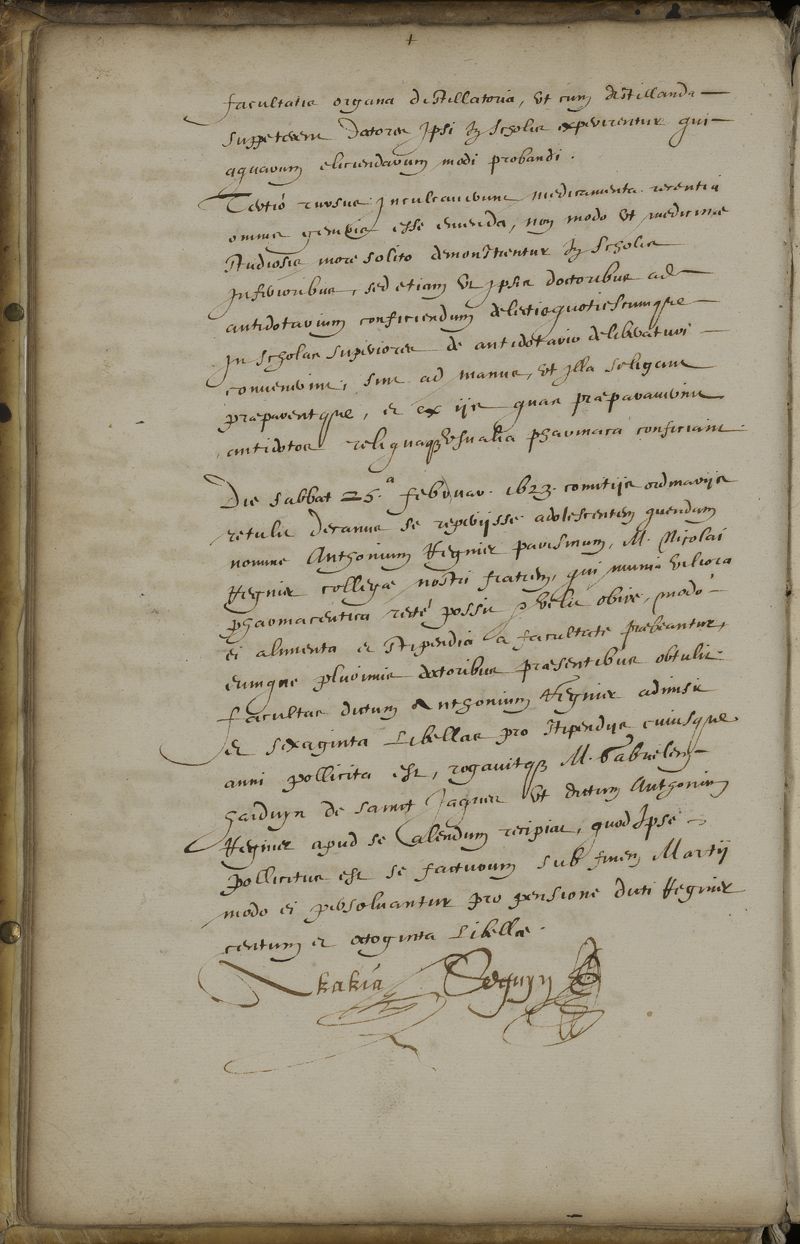 facultatis organa distillatoria, ut cum distillanda
suppeterent doctores ipsi in scholis experirentur qui
aquarum eliciendarum modi probandi.
Tertio rursus inculcaverunt medicamenta recentia
omnis generis esse emenda, non modo ut medicinæ
studiosis more solito demonstrentur in scholis
inferioribus, sed etiam ut ipsis doctoribus ad
antidotarium conficiendum delectis quotiescumque
in scholas superiores de antidotario deliberaturi
convenerint, sint ad manus, ut illa seligant
præparentque, et ex iis quae præparaverint
antidotos reliquaque usualia pharmaca conficiant.
Die sabbat 25.a februar. 1623. comitiis ordinariis
retulit decanus se reperiisse adolescentem quendam
nomine Anthonium Regnier parisinum, M. Nicolai
Regnier collegæ nostri fratrem, qui munia viliora
pharmaceutica recté possit velit obire, modo
ei alimenta et stipendia a facultate præbeantur,
eumque plurimis doctoribus præsentibus obtulit
facultas dictum Anthonium Regnier admisit
et sexaginta Libellas pro stipendiis cuiusque
anni pollicita est, rogavitque M. Gabrielem
harduyn de sainct Jaques ut dictum Anthonium
Regnier apud se alendum recipiat, quod Ipse
pollicitus est se facturum sub finem Martij
modo ei persolvantur pro pensione dicti Regnier
centum et octoginta Libellæ.
Akakia Seguyn